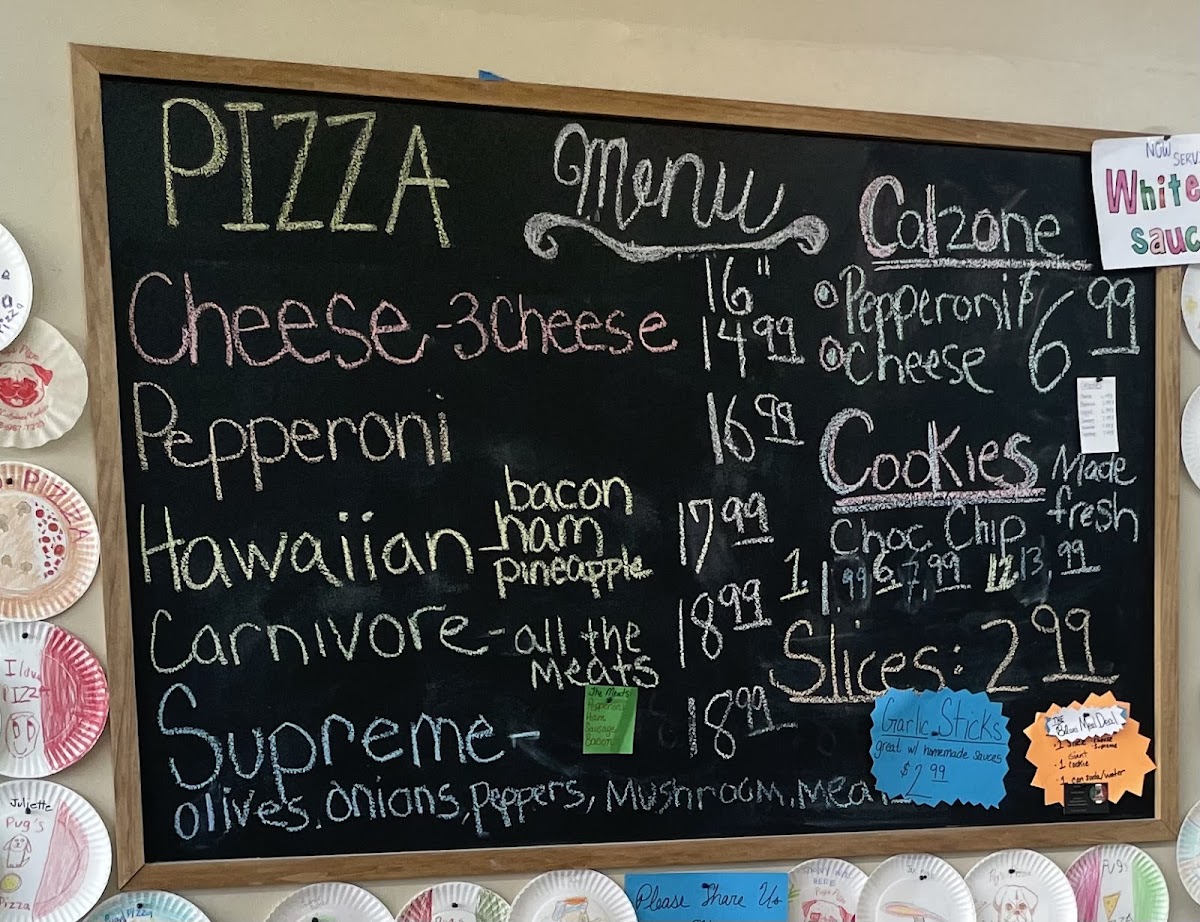 PIZZA Menu
16"
Cheese - 3 Cheese 14.99
Pepperoni 16.99
Hawaiian - bacon
ham
pineapple 17.99
Carnivore - all the
Meats 18.99
The Meats!
Pepperoni
Ham
Sausage
Bacon
Supreme - 18.99
olives, onions, peppers, Mushroom, Meats
Calzone
Pepperoni
Cheese
$6.99
Cookies Made
fresh
Choc. Chip
1 1.99 6 7.99 12 13.99
Slices: 2.99
Garlic Sticks
great w/ homemade sauces
$2.99
Meal Deal
Cookie
1 can soda/water
NOW SERV
White
sauc
PIZZA
I love
PIZZA
Juliette
Pug's
Pizza
Please Share Us